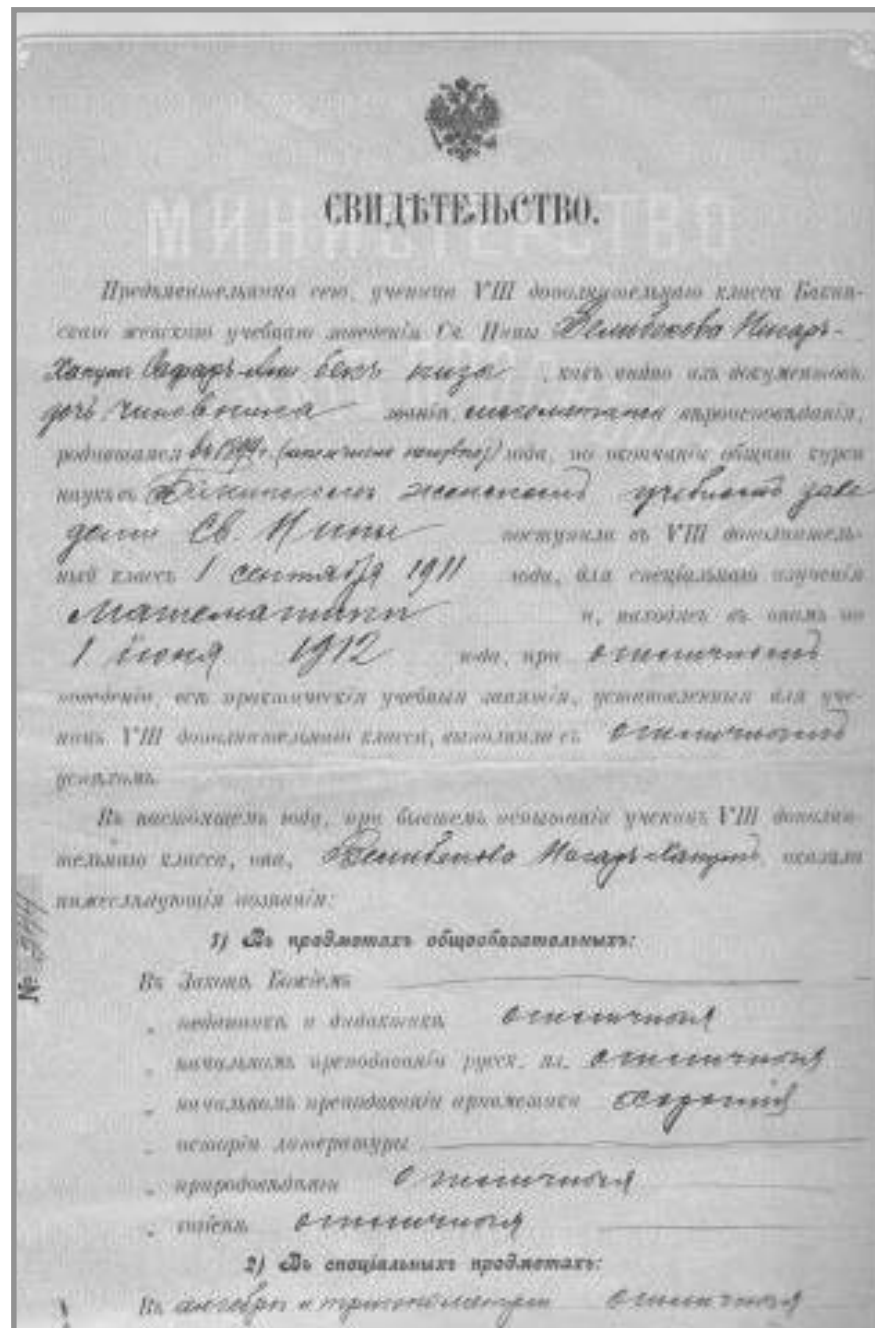 МИНИСТЕРСТВО
СВИДѢТЕЛЬСТВО.
Предъявительница сего, ученица VIII дополнительнаго класса Бакин-
скаго женскаго учебнаго заведенія Св. Нины Велибекова Нигаръ-
Ханумъ Сафаръ-Али бекъ кизы, какъ видно изъ документовъ,
дочь чиновника званія, магометанскаго вѣроисповѣданія,
родившаяся въ года, по окончаніи общаго курса
наукъ въ Бакинскомъ женскомъ учебномъ заве
деніи Св. Нины поступила въ VIII дополнитель-
ный классъ 1 сентября 1911 года, для спеціальнаго изученія
Математики и, находясь въ ономъ по
1 іюня 1912 года, при отличномъ
поведеніи, всѣ практическія учебныя занятія, установленныя для уче-
ницъ VIII дополнительнаго класса, выполнила съ отличнымъ
успѣхомъ.
Въ настоящемъ году, при бывшемъ испытаніи ученицъ VIII дополни-
тельнаго класса, она, Велибекова Нигаръ-Ханумъ, оказала
нижеслѣдующія познанія:
1) Въ предметахъ общеобязательныхъ:
Въ Законѣ Божіемъ
„ педагогикѣ и дидактикѣ отличныя
„ начальномъ преподаваніи русск. яз. отличныя
„ начальномъ преподаваніи ариѳметики хорошія
„ исторіи литературы
„ природовѣдѣніи отличныя
„ гигіенѣ отличныя
2) Въ спеціальныхъ предметахъ:
Въ алгебрѣ и тригонометріи отличныя
№